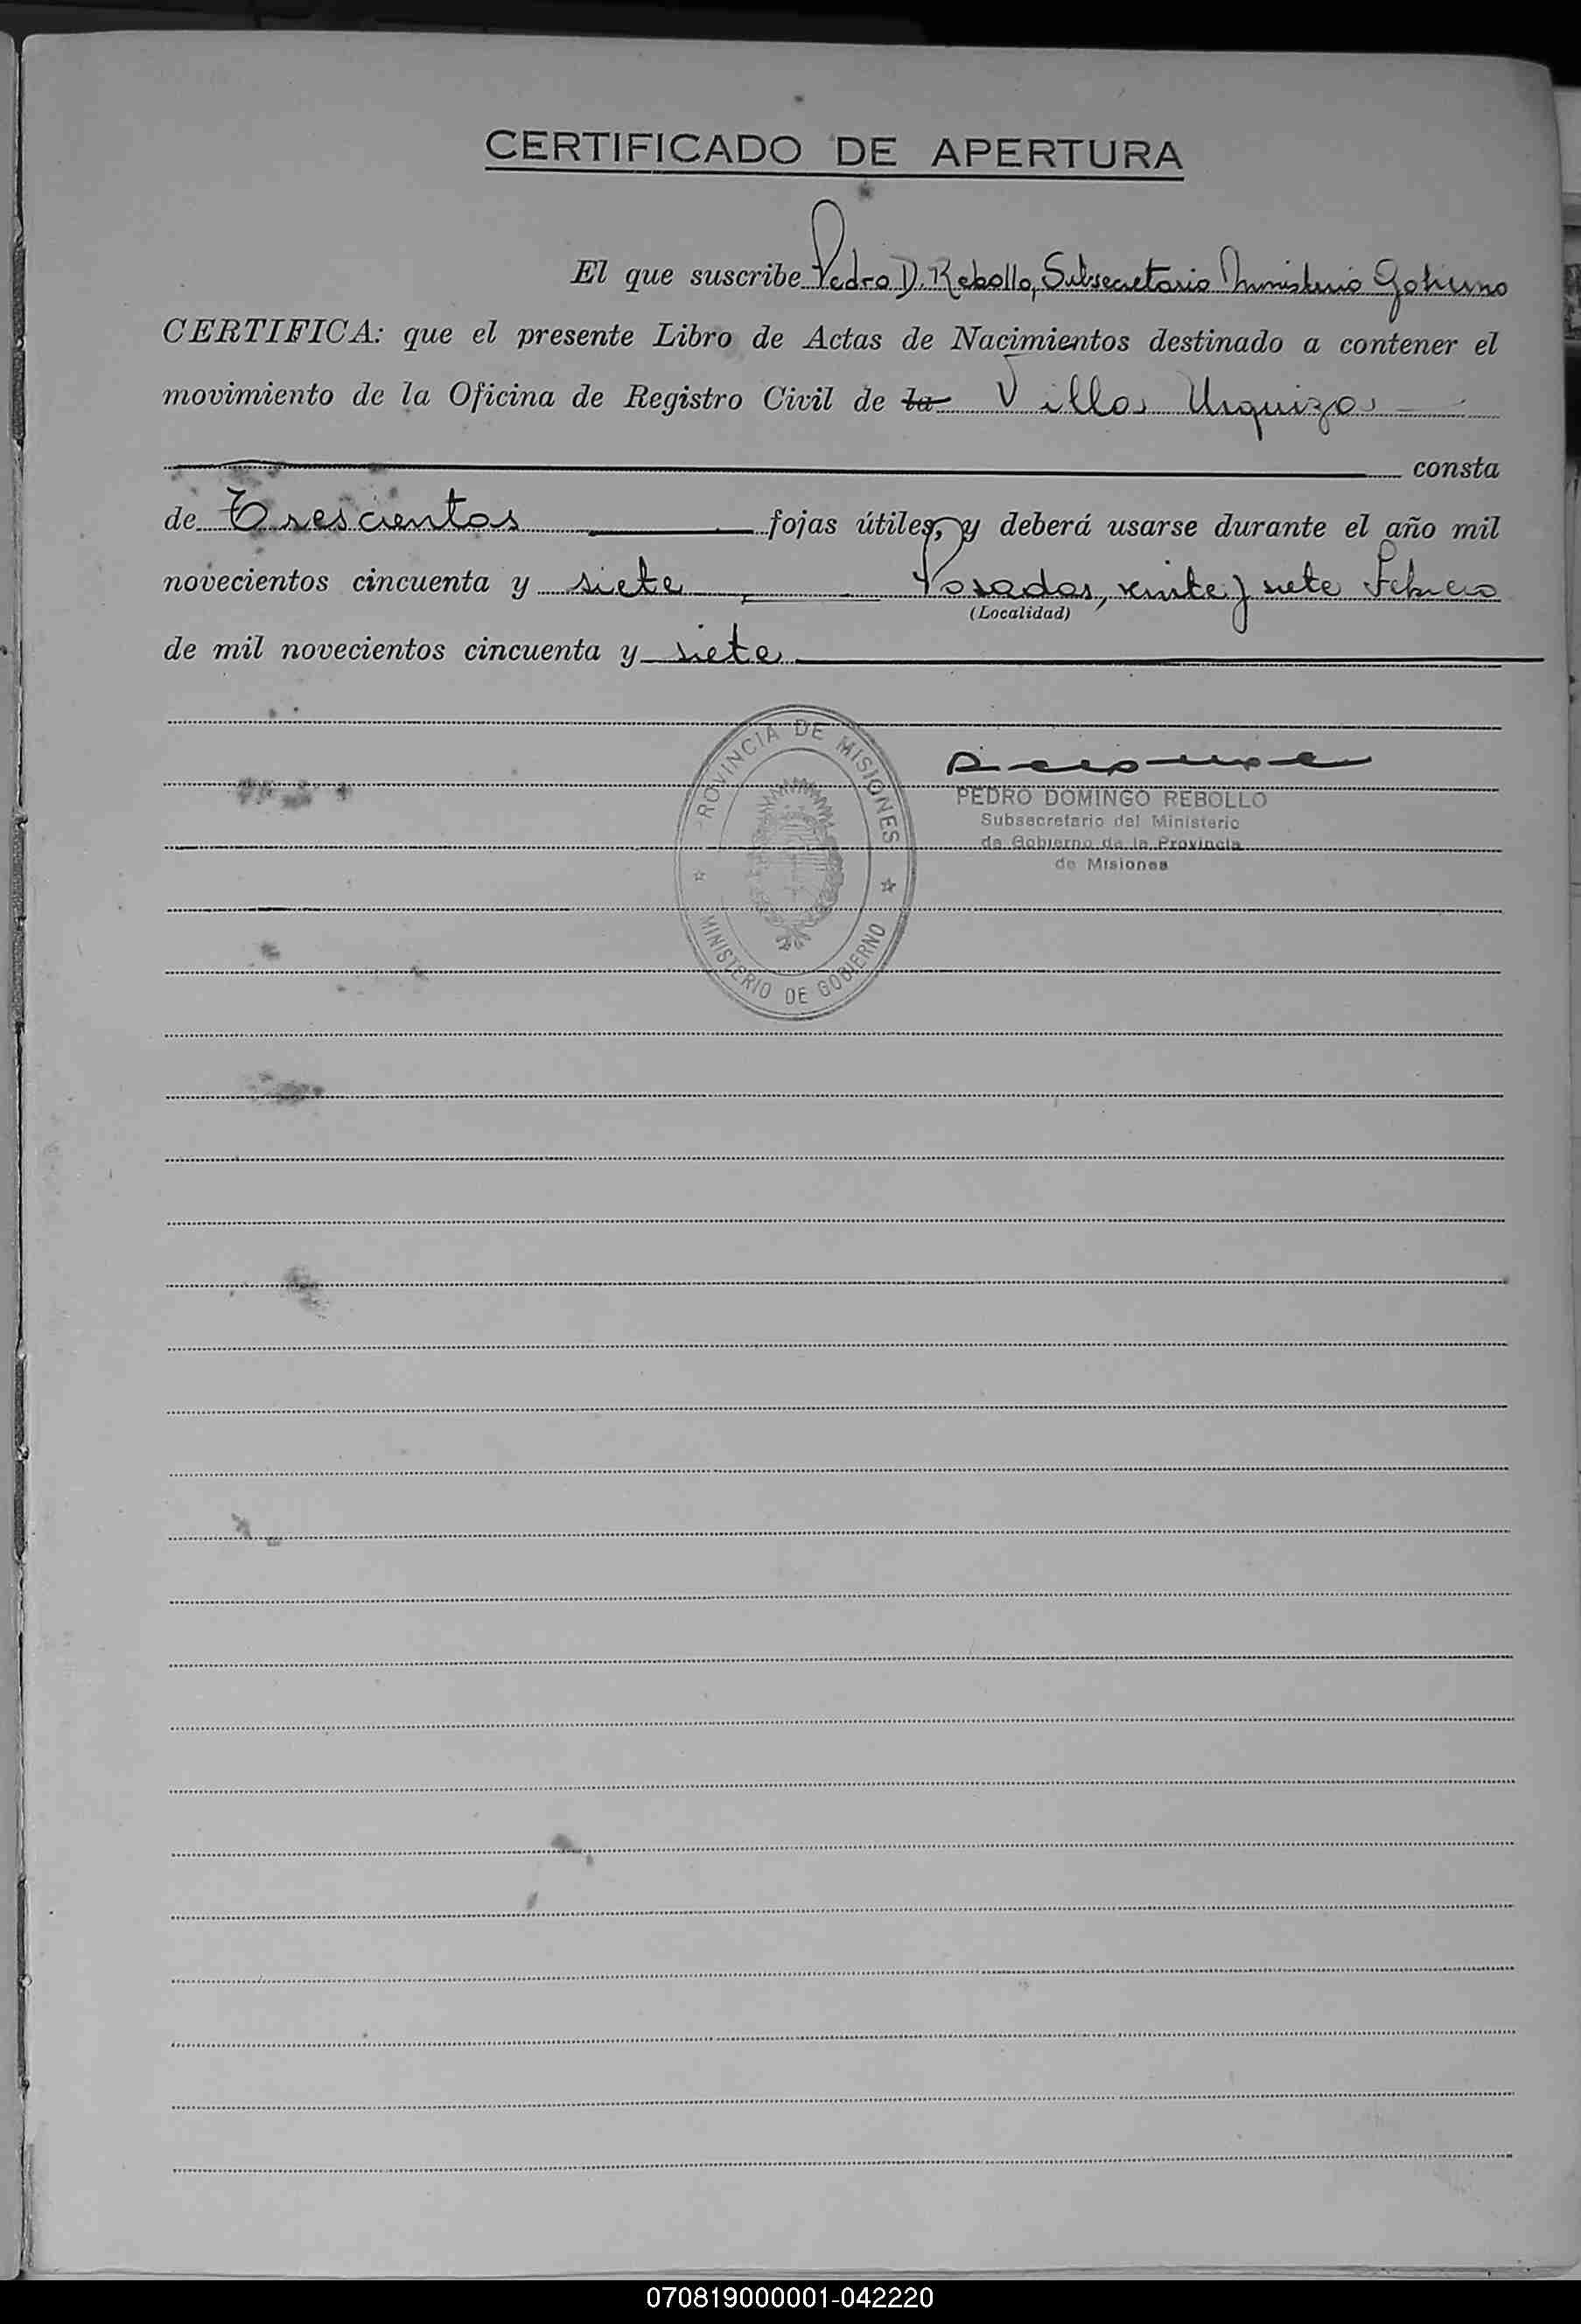 CERTIFICADO DE APERTURA
El que suscribe Pedro D. Rebollo, Subsecretario Ministerio Gobierno
CERTIFICA: que el presente Libro de Actas de Nacimientos destinado a contener el
movimiento de la Oficina de Registro Civil de la Villa Urquiza
consta
de Trescientas fojas útiles, y deberá usarse durante el año mil
novecientos cincuenta y siete Posadas, veinte y siete Febrero
(Localidad)
de mil novecientos cincuenta y siete
PROVINCIA DE MISIONES
MINISTERIO DE GOBIERNO
PEDRO DOMINGO REBOLLO
Subsecretario del Ministerio
de Gobierno de la Provincia
de Misiones
070819000001-042220